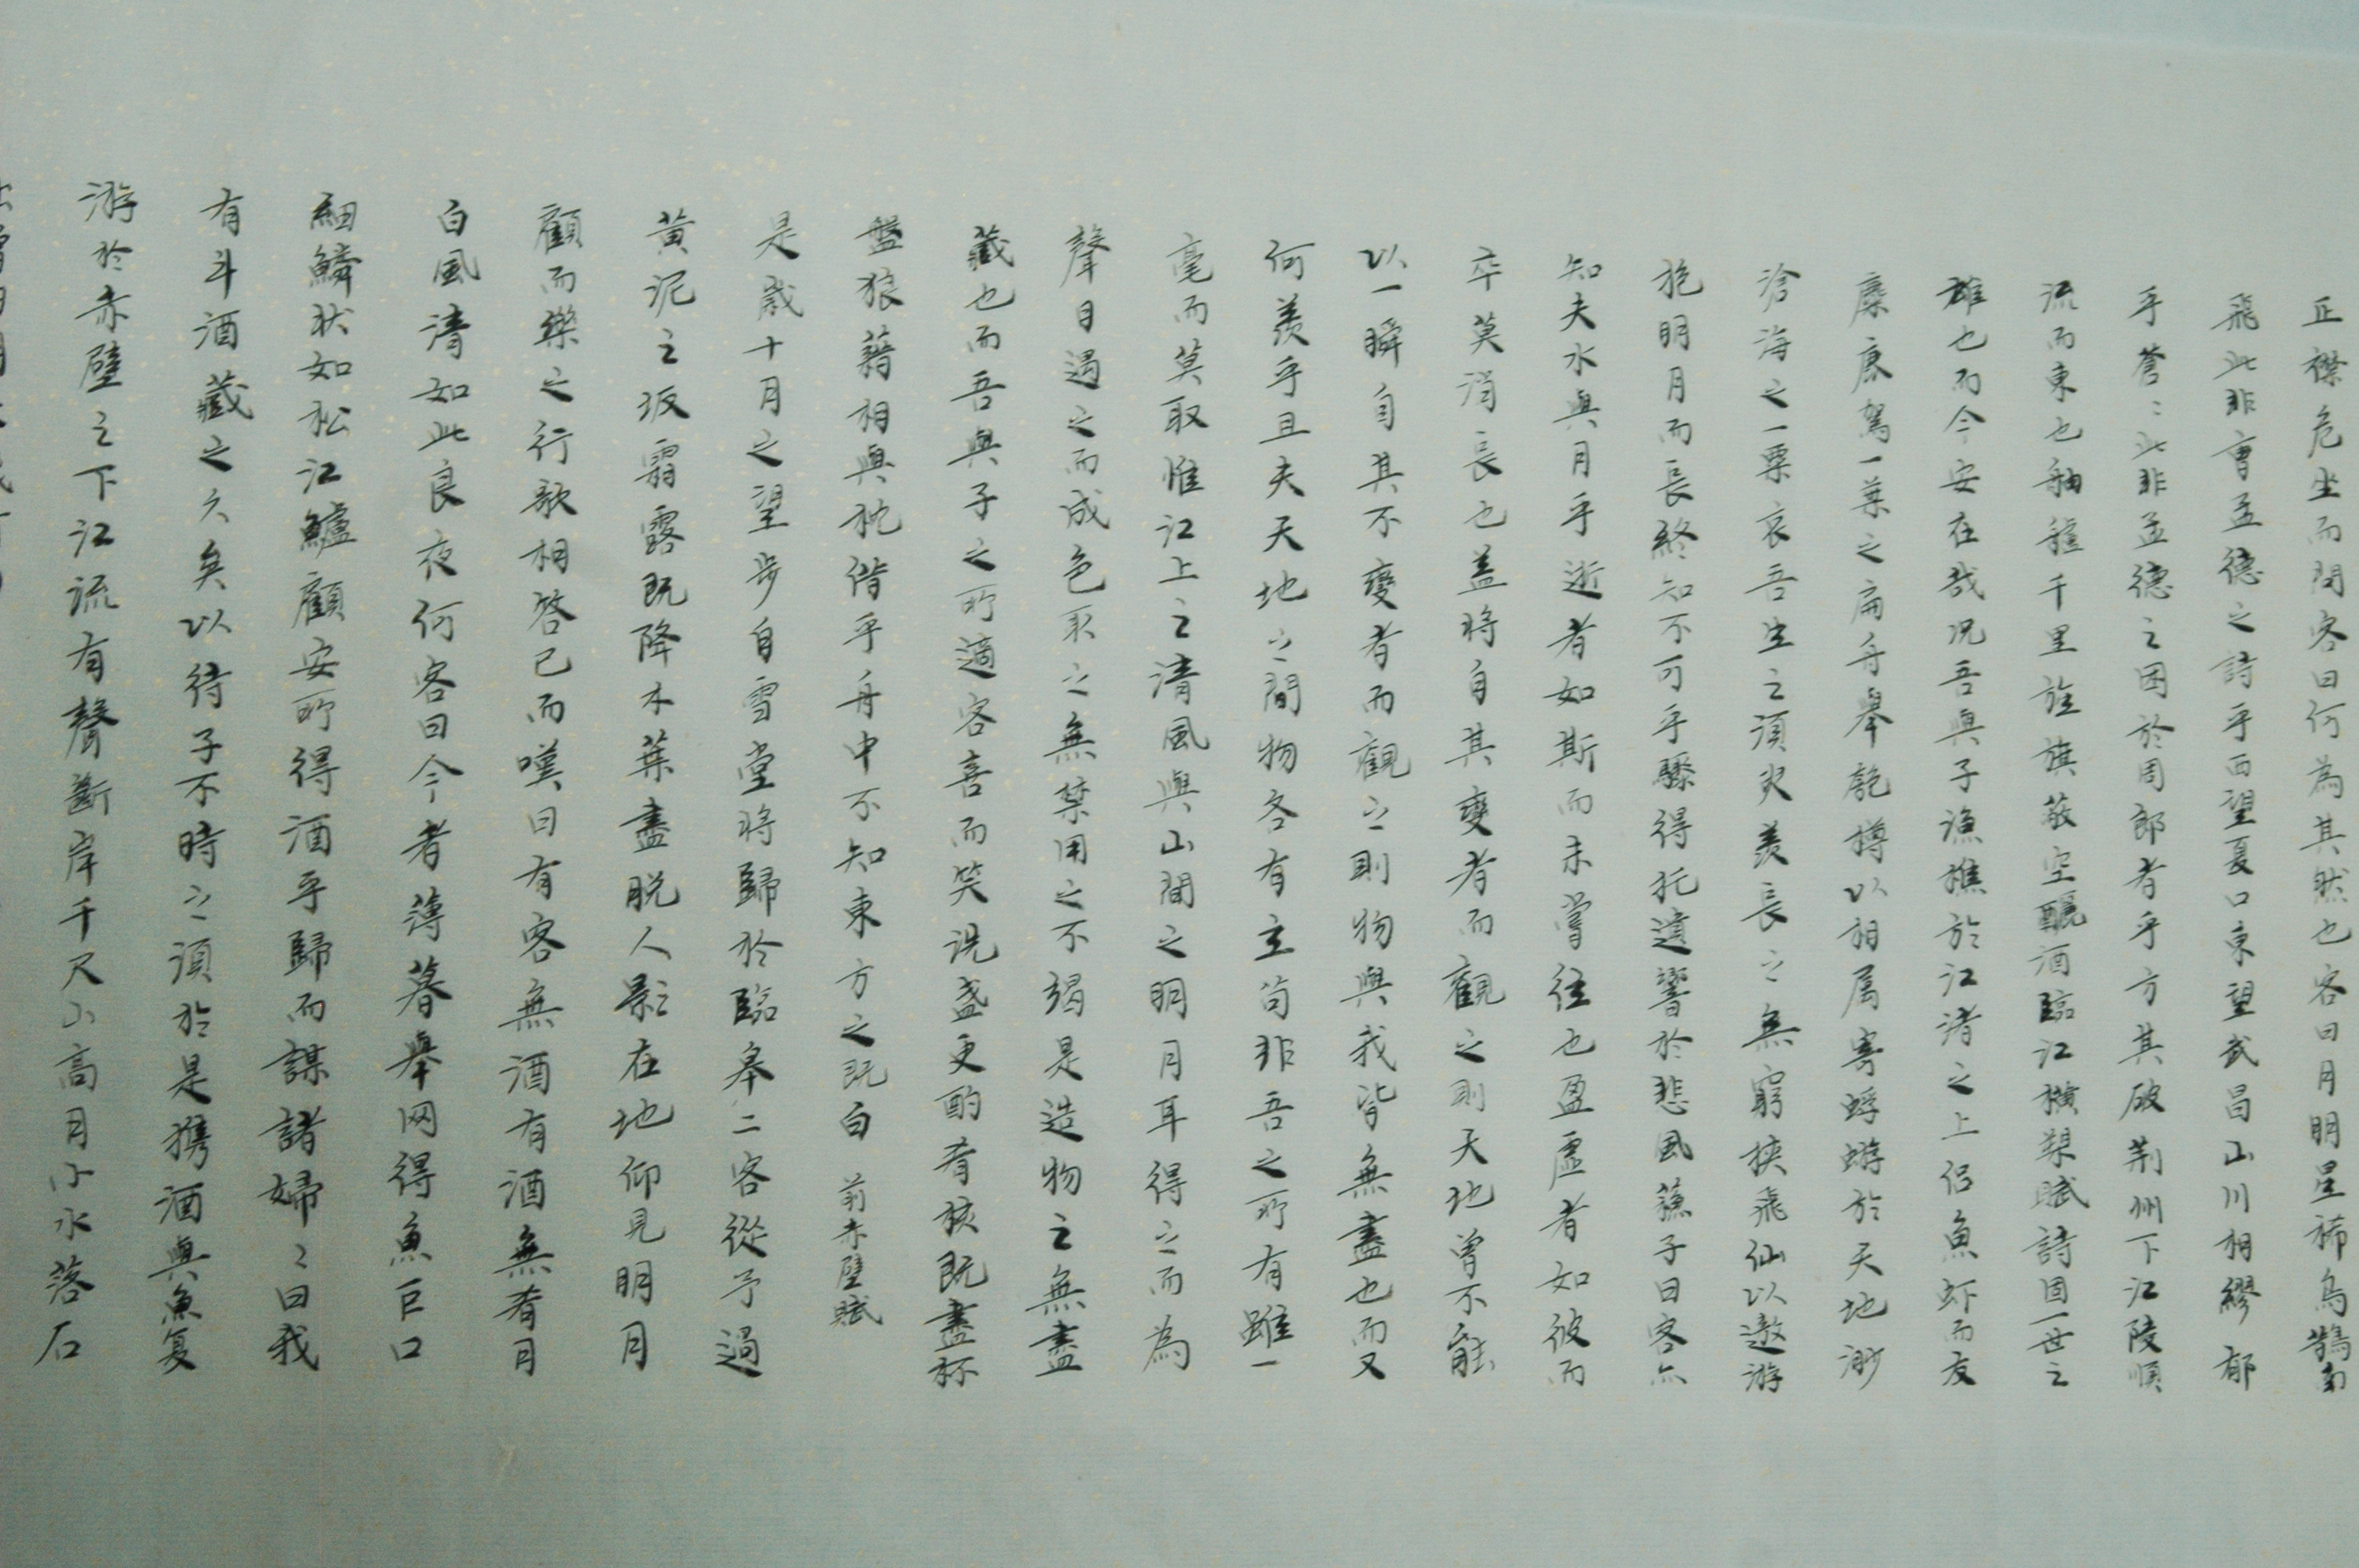 正襟危坐而問客曰何為其然也客曰月明星稀烏鵲南
飛此非曹孟德之詩乎西望夏口東望武昌山川相繆郁
乎蒼々此非孟德之困於周郎者乎方其破荊州下江陵順
流而東也舳艫千里旌旗蔽空釃酒臨江橫槊賦詩固一世之
雄也而今安在哉況吾與子漁樵於江渚之上侶魚虾而友
麋鹿駕一葉之扁舟舉匏樽以相屬寄蜉蝣於天地渺
滄海之一粟哀吾生之須臾羨長之無窮挾飛仙以遨游
抱明月而長終知不可乎驟得托遺響於悲風蘇子曰客亦
知夫水與月乎逝者如斯而未嘗往也盈虛者如彼而
卒莫消長也蓋將自其變者而觀之則天地曾不能
以一瞬自其不變者而觀之則物與我皆無盡也而又
何羨乎且夫天地之間物各有主苟非吾之所有雖一
毫而莫取惟江上之清風與山間之明月耳得之而為
聲目遇之而成色取之無禁用之不竭是造物之無盡
藏也而吾與子之所適客喜而笑洗盞更酌肴核既盡杯
盤狼藉相與枕藉乎舟中不知東方之既白 前赤壁賦
是歲十月之望步自雪堂將歸於臨皋二客從予過
黃泥之坂霜露既降木葉盡脫人影在地仰見明月
顧而樂之行歌相答已而嘆曰有客無酒有酒無肴月
白風清如此良夜何客曰今者薄暮舉網得魚巨口
細鱗狀如松江鱸顧安所得酒乎歸而謀諸婦々曰我
有斗酒藏之久矣以待子不時之須於是攜酒與魚復
游於赤壁之下江流有聲斷岸千尺山高月小水落石